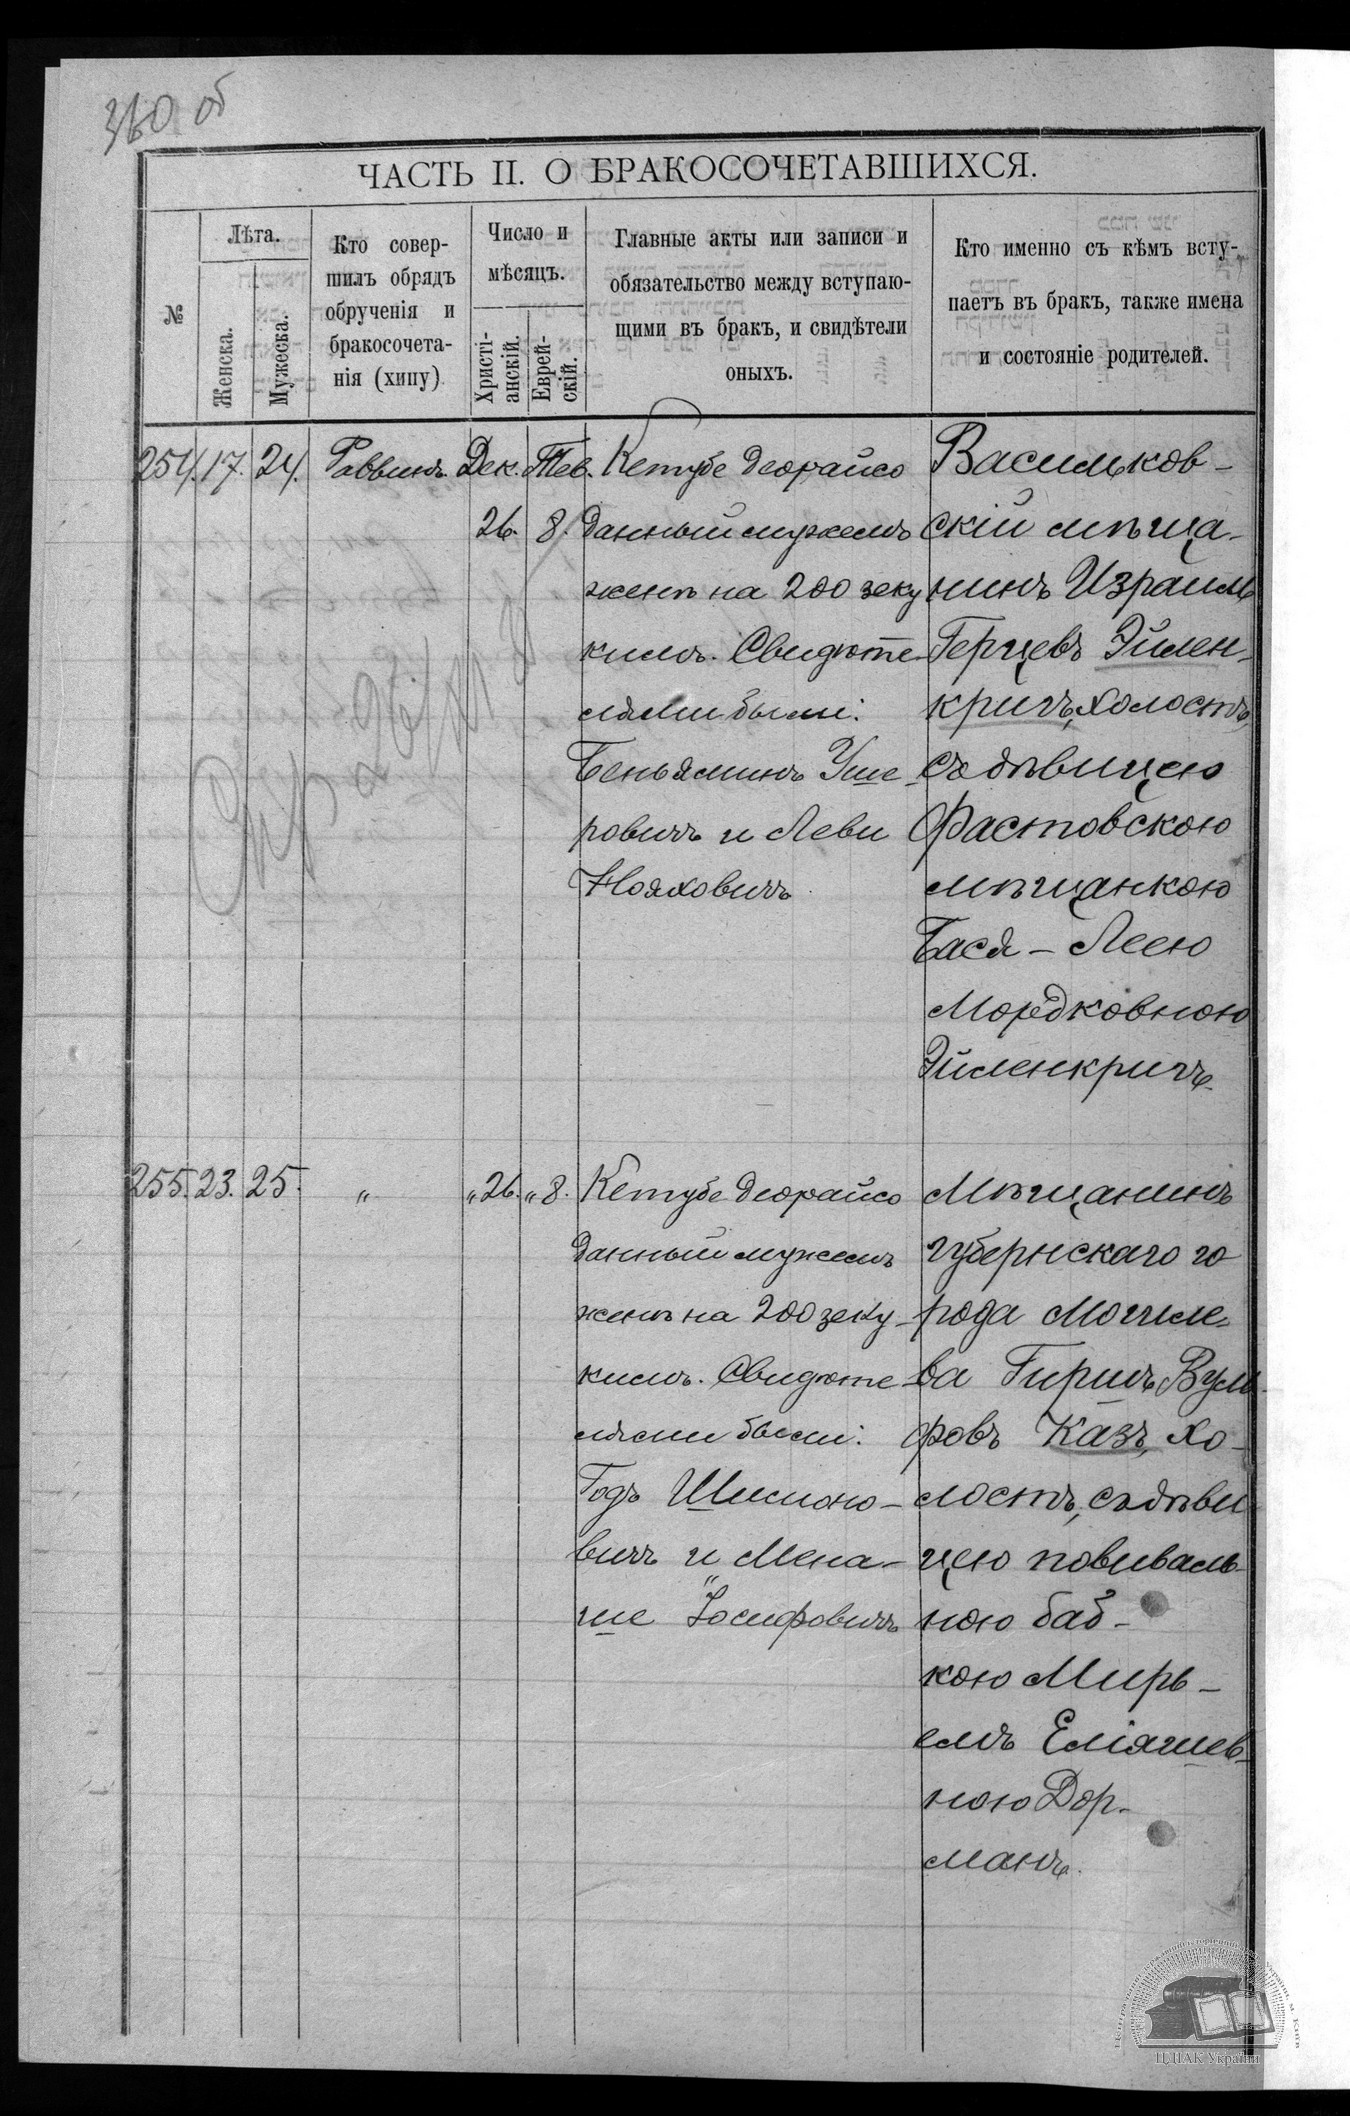 360 об
ЧАСТЬ II. О БРАКОСОЧЕТАВШИХСЯ.
№
Лѣта.
Женска.
Мужеска.
Кто совер-
шилъ обрядъ
обрученія и
бракосочета-
нія (хипу)
Число и
мѣсяцъ.
Христі-
анскій.
Еврей-
скій.
Главные акты или записи и
обязательство между вступаю-
щими въ бракъ, и свидѣтели
оныхъ.
Кто именно съ кѣмъ всту-
паетъ въ бракъ, также имена
и состояніе родителей.
254. 17. 24. Раввинъ Дек. 26. Тев. 8.
Кетубе деорайсо
данный мужемъ
женѣ на 200 зеку
кимъ. Свидѣте-
лями были:
Беньяминъ Уше-
ровичъ и Леви
Нояховичъ
Васильков-
скій мѣща-
нинъ Израиль
Герцевъ Эйлен-
кричъ, холостъ,
съ дѣвицею
Фастовскою
мѣщанкою
Бася-Леею
Мордковною
Эйленкричъ.
255. 23. 25. " " 26. " 8.
Кетубе деорайсо
данный мужемъ
женѣ на 200 зеку-
кимъ. Свидѣте
лями были:
Годъ Шимоно-
вичъ и Мена-
ше Іосифовичъ
Мѣщанинъ
губернскаго го
рода Могиле-
ва Гиршъ Вуль-
фовъ Казъ, хо-
лостъ, съ дѣви
цею повиваль-
ною баб-
кою Мирь-
емъ Еліяшев-
ною Дор-
манъ.
ЦДІАК України